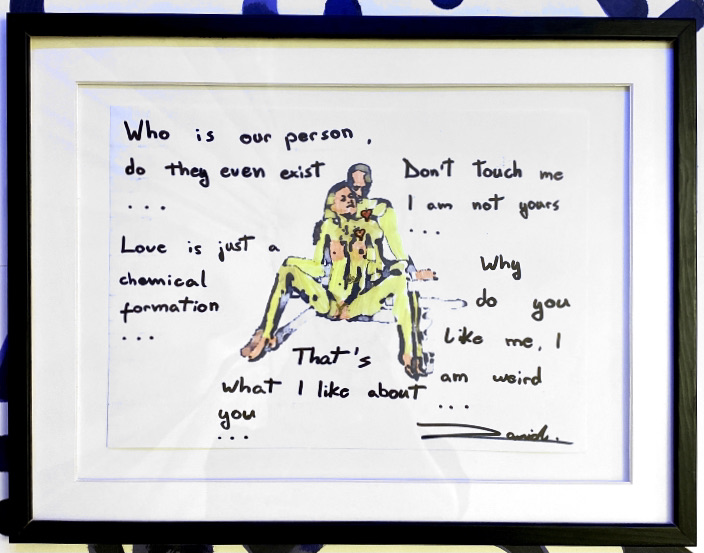 Who is our person,
do they even exist
...
Love is just a
chemical
formation
...
Don't touch me
I am not yours
...
Why
do you
Like me, I
am weird
...
That's
what I like about
you
...